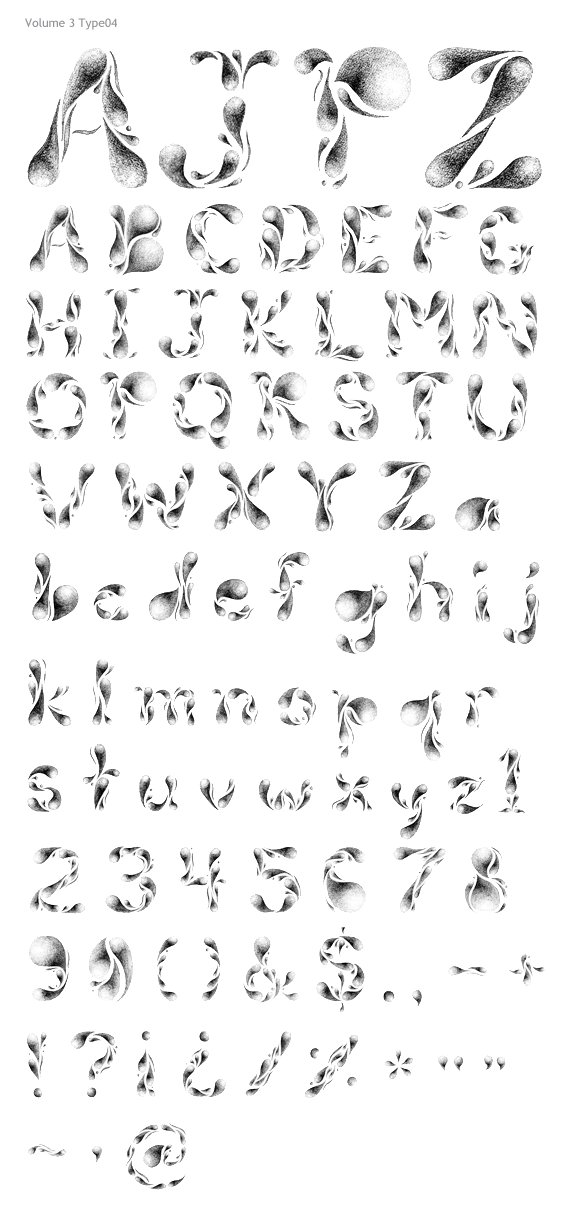 Volume 3 Type04
AJPZ
ABCDEFG
HIJKLMN
OPQRSTU
VWXYZa
bcdefghij
klmnopqr
stuvwxyz1
2345678
90()&$.,-+
!?¡¿/%*"„
~'@